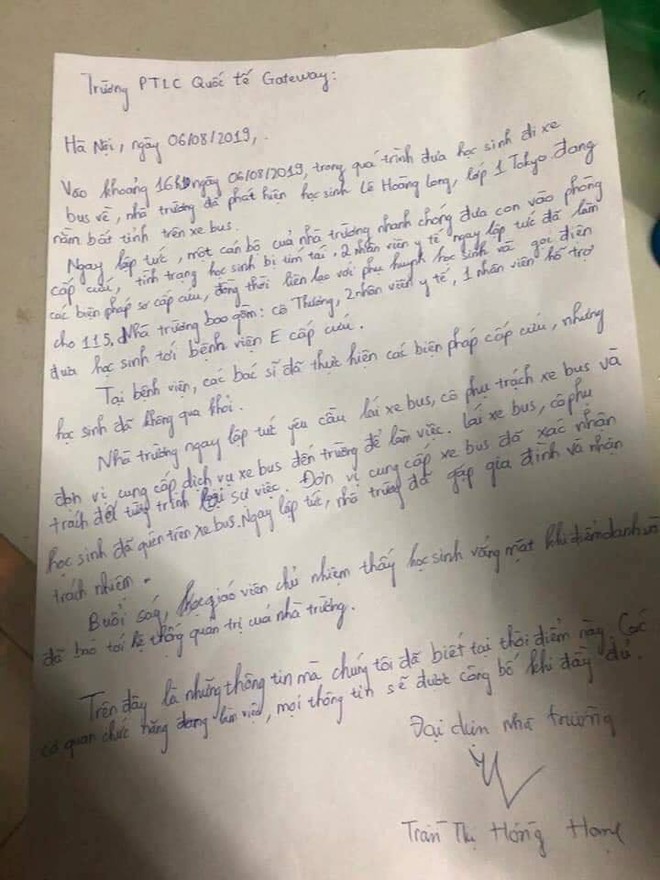 Trường PTLC Quốc tế Gateway:
Hà Nội, ngày 06/08/2019,.
Vào khoảng 16h ngày 06/08/2019, trong quá trình đưa học sinh đi xe
bus về, nhà trường đã phát hiện học sinh Lê Hoàng Long, lớp 1 Tokyo đang
nằm bất tỉnh trên xe bus.
Ngay lập tức, một cán bộ cuả nhà trường nhanh chóng đưa con vào phòng
cấp cứu, tình trạng học sinh bị tím tái. 2 nhân viên y tế ngay lập tức đã làm
các biện pháp sơ cấp cứu, đồng thời liên lạc với phụ huynh học sinh và gọi điện
cho 115. Nhà trường bao gồm: cô Thương, 2 nhân viên y tế, 1 nhân viên hỗ trợ
đưa học sinh tới bệnh viện E cấp cứu.
Tại bệnh viện, các bác sĩ đã thực hiện các biện pháp cấp cứu, nhưng
học sinh đã không qua khỏi.
Nhà trường ngay lập tức yêu cầu lái xe bus, cô phụ trách xe bus và
đơn vị cung cấp dịch vụ xe bus đến trường để làm việc. Lái xe bus, cô phụ
trách để tường trình sự việc. Đơn vị cung cấp xe bus đã xác nhận
học sinh đã quên trên xe bus. Ngay lập tức, nhà trường đã gặp gia đình và nhận
trách nhiệm.
Buổi sáng, giáo viên chủ nhiệm thấy học sinh vắng mặt khi điểm danh và
đã báo tới hệ thống quản trị cuả nhà trường.
Trên đây là những thông tin mà chúng tôi đã biết tại thời điểm này. Các
cơ quan chức năng đang làm việc, mọi thông tin sẽ được công bố khi đầy đủ.
Đại diện nhà trường
Trần Thị Hồng Hạnh